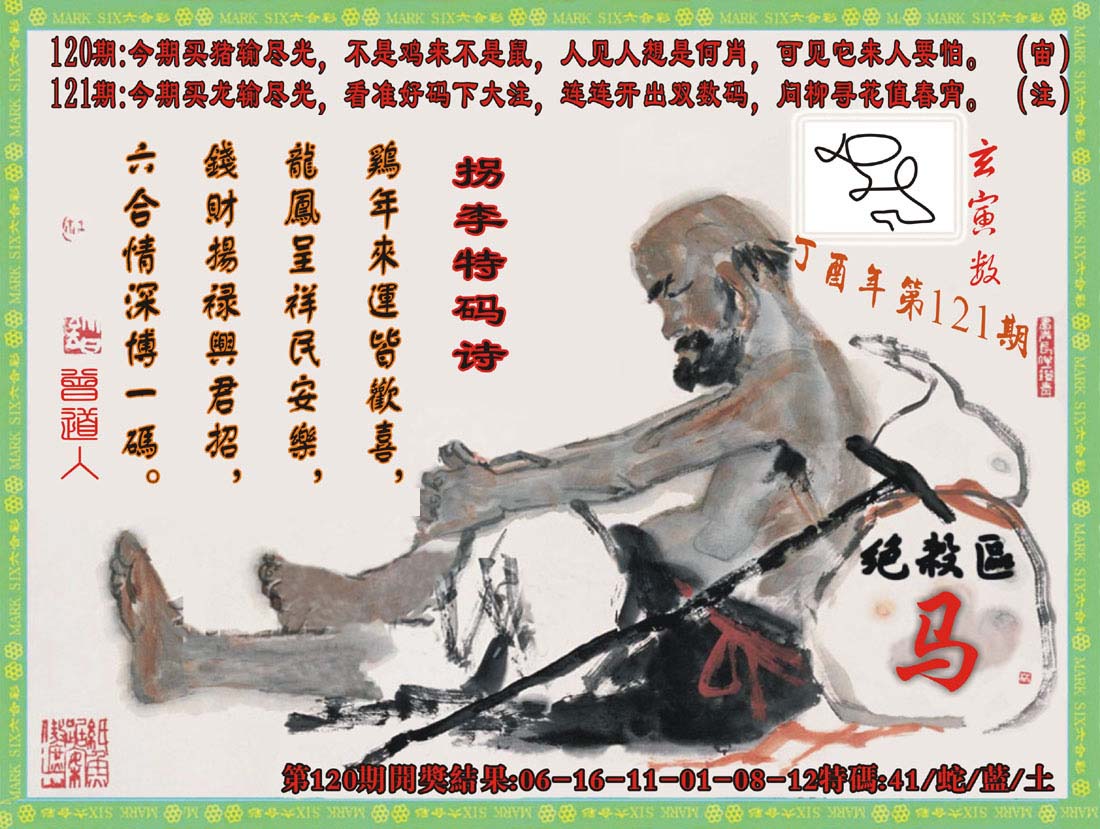 MARK SIX六合彩
120期:今期买猪输尽光，不是鸡来不是鼠，人见人想是何肖，可见它来人要怕。（宙）
121期:今期买龙输尽光，看准好码下大注，连连开出双数码，问柳寻花值春宵。（注）
玄寅数
丁酉年第121期
拐李特码诗
鷄年來運皆歡喜，
龍鳳呈祥民安樂，
錢財揚禄興君招，
六合情深博一碼。
曾道人
绝殺區
马
第120期開獎結果:06-16-11-01-08-12特碼:41/蛇/藍/土